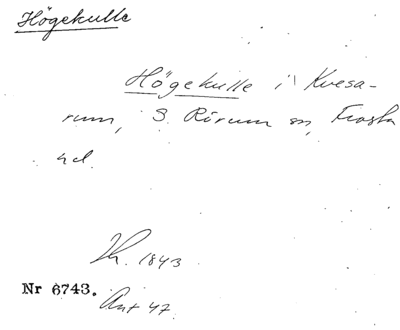 Högekulle
Högekulle i Kvesa-
rum, S. Rörum sn, Frosta
hd.
1843
Nr 6743.
Ant 47.